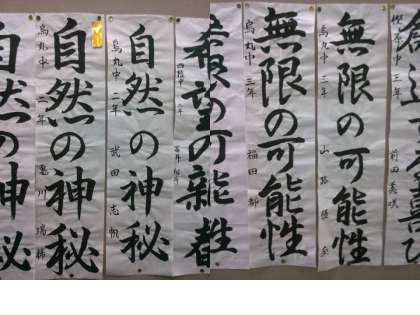 造する喜び
中 三年 前田美咲
無限の可能性
烏丸中 三年 山路
無限の可能性
烏丸中 三年 福田都
希望の
自然の神秘
烏丸中 二年 武田志帆
自然の神秘
烏丸中 二年
自然の神秘